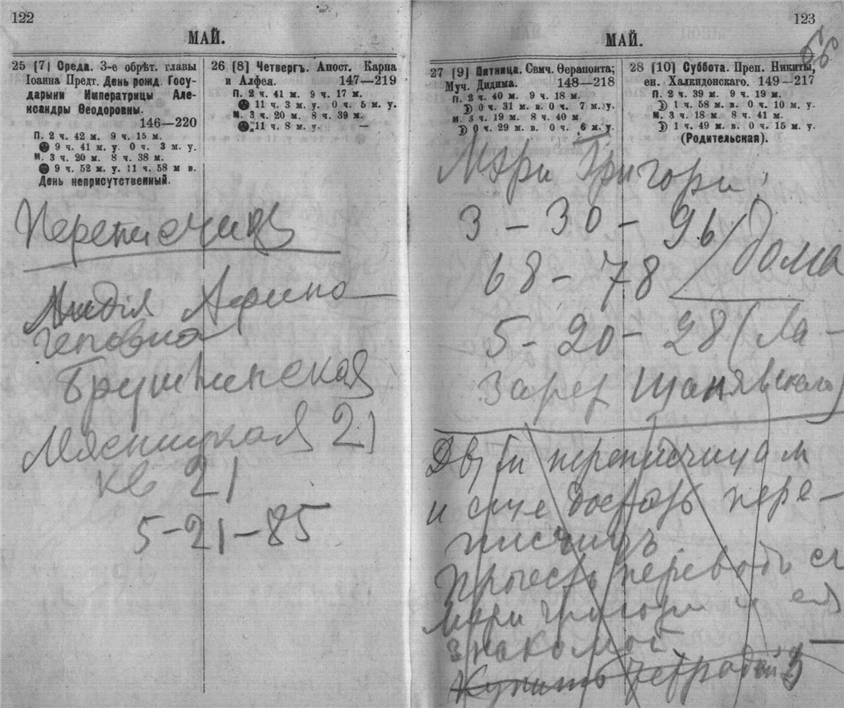 122
МАЙ.
25 (7) Среда. 3-е обрѣт. главы
Іоанна Предт. День рожд. Госу-
дарыни Императрицы Але-
ксандры Ѳеодоровны.
146—220
П. 2 ч. 42 м. 9 ч. 15 м.
9 ч. 41 м. у. 0 ч. 3 м. у.
М. 3 ч. 20 м. 8 ч. 38 м.
9 ч. 52 м. у. 11 ч. 58 м в.
День неприсутственный.
26 (8) Четвергъ. Апост. Карпа
и Алфея. 147—219
П. 2 ч. 41 м. 9 ч. 17 м.
11 ч. 3 м. у. 0 ч. 5 м. у.
М. 3 ч. 20 м. 8 ч. 39 м.
11 ч. 8 м. у. —
Переписчица
Лидія Афино-
геновна
Брушлинская
Мясницкая 21
кв 21
5-21-85
123
МАЙ.
27 (9) Пятница. Свмч. Ѳерапонта;
Муч. Дидима. 148—218
П. 2 ч. 40 м. 9 ч. 18 м.
0 ч. 31 м. в. 0 ч. 7 м. у.
М. 3 ч. 19 м. 8 ч. 40 м
0 ч. 29 м. в. 0 ч. 6 м. у
28 (10) Суббота. Преп. Никиты,
еп. Халкидонскаго. 149—217
П. 2 ч. 39 м. 9 ч. 19 м.
1 ч. 58 м. в. 0 ч. 10 м. у.
М. 3 ч. 18 м. 8 ч. 41 м.
1 ч. 49 м. в. 0 ч. 15 м. у.
(Родительская).
Мэри Григори
3-30-96
68-78 дома
5-20-28 (Ла-
зарет Шанявскаго)
переписчицам
и еще достать пере-
писчицъ
Просить переводъ
Мэри Григори и ея
знакомой
Купить тетрадей 3